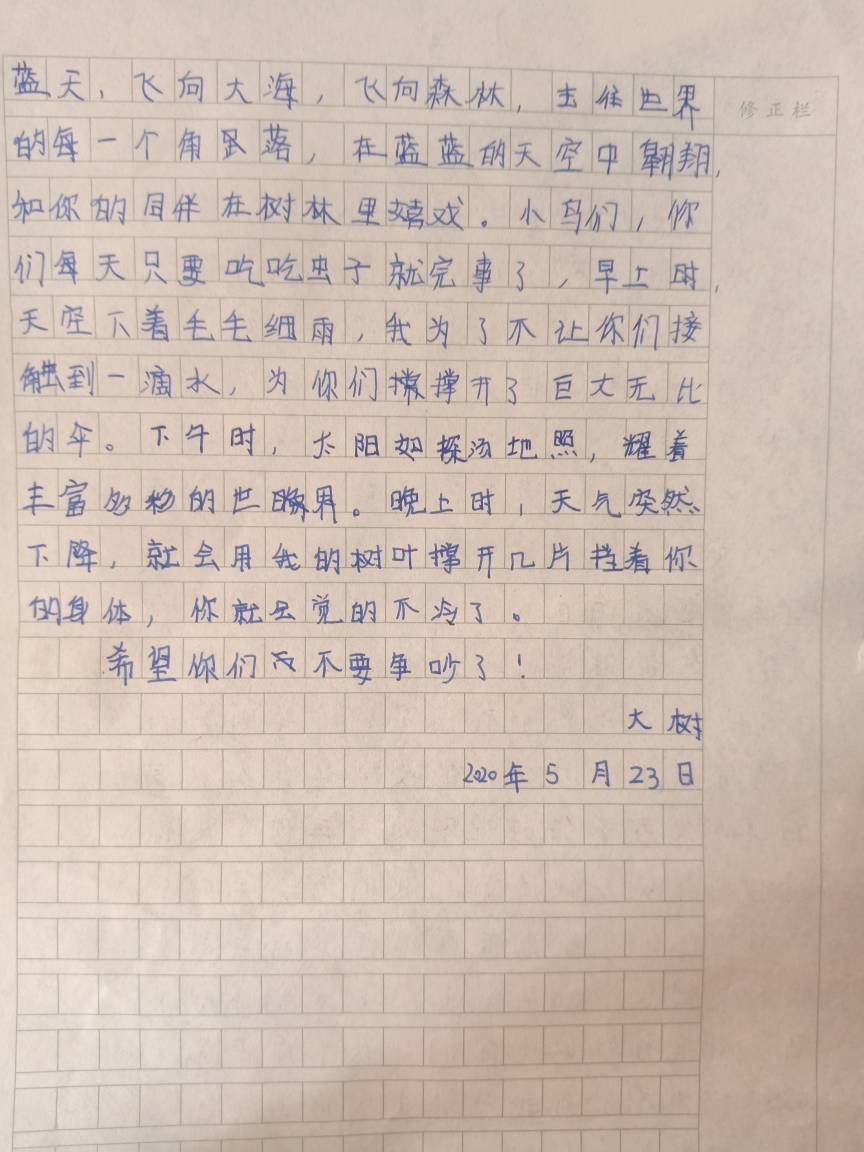 蓝天，飞向大海，飞向森林，去往世界
修正栏
的每一个角落，在蓝蓝的天空中翱翔，
和你的同伴在树林里嬉戏。小鸟们，你
们每天只要吃吃虫子就完事了，早上时，
天空下着毛毛细雨，我为了不让你们接
触到一滴水，为你们撑开了巨大无比
的伞。下午时，太阳如探汤地照，耀着
丰富多彩的世界。晚上时，天气突然
下降，就会用我的树叶撑开几片挡着你
的身体，你就会觉的不冷了。
希望你们不要争吵了！
大树
2020年5月23日